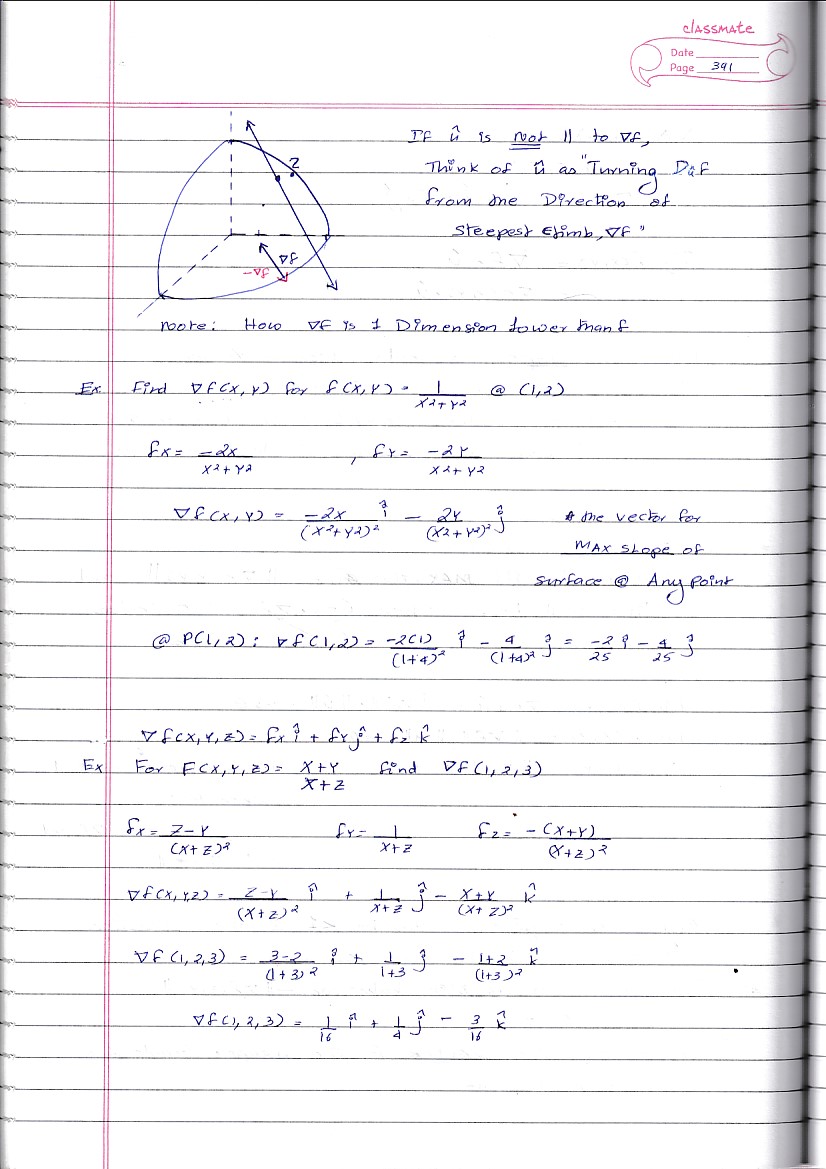 classmate
Date
Page 391
If û is not || to ∇f,
Think of û as "Turning Dûf
from the Direction of
Steepest Climb, ∇f"
z
∇f
-∇f
Note: How ∇f is 1 Dimension lower than f
Ex Find ∇f(x,y) for f(x,y) = 1/(x²+y²) @ (1,2)
fx = -2x/(x²+y²) , fy = -2y/(x²+y²)
∇f(x,y) = -2x/(x²+y²)² î - 2y/(x²+y²)² ĵ * the vector for
MAX slope of
surface @ Any point
@ P(1,2): ∇f(1,2) = -2(1)/(1+4)² î - 4/(1+4)² ĵ = -2/25 î - 4/25 ĵ
∇f(x,y,z) = fx î + fy ĵ + fz k̂
Ex For F(x,y,z) = (x+y)/(x+z) find ∇f(1,2,3)
fx = (z-y)/(x+z)² fy = 1/(x+z) fz = -(x+y)/(x+z)²
∇f(x,y,z) = (z-y)/(x+z)² î + 1/(x+z) ĵ - (x+y)/(x+z)² k̂
∇f(1,2,3) = (3-2)/(1+3)² î + 1/(1+3) ĵ - (1+2)/(1+3)² k̂
∇f(1,2,3) = 1/16 î + 1/4 ĵ - 3/16 k̂